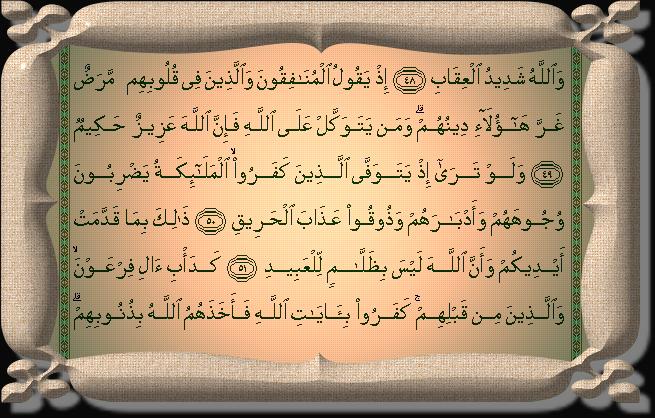 وَٱللَّهُ شَدِيدُ ٱلْعِقَابِ ٤٨ إِذْ يَقُولُ ٱلْمُنَـٰفِقُونَ وَٱلَّذِينَ فِى قُلُوبِهِم مَّرَضٌ
غَرَّ هَـٰٓؤُلَآءِ دِينُهُمْ ۗ وَمَن يَتَوَكَّلْ عَلَى ٱللَّهِ فَإِنَّ ٱللَّهَ عَزِيزٌ حَكِيمٌ
٤٩ وَلَوْ تَرَىٰٓ إِذْ يَتَوَفَّى ٱلَّذِينَ كَفَرُوا۟ ۙ ٱلْمَلَـٰٓئِكَةُ يَضْرِبُونَ
وُجُوهَهُمْ وَأَدْبَـٰرَهُمْ وَذُوقُوا۟ عَذَابَ ٱلْحَرِيقِ ٥٠ ذَٰلِكَ بِمَا قَدَّمَتْ
أَيْدِيكُمْ وَأَنَّ ٱللَّهَ لَيْسَ بِظَلَّـٰمٍ لِّلْعَبِيدِ ٥١ كَدَأْبِ ءَالِ فِرْعَوْنَ ۙ
وَٱلَّذِينَ مِن قَبْلِهِمْ ۚ كَفَرُوا۟ بِـَٔايَـٰتِ ٱللَّهِ فَأَخَذَهُمُ ٱللَّهُ بِذُنُوبِهِمْ ۗ